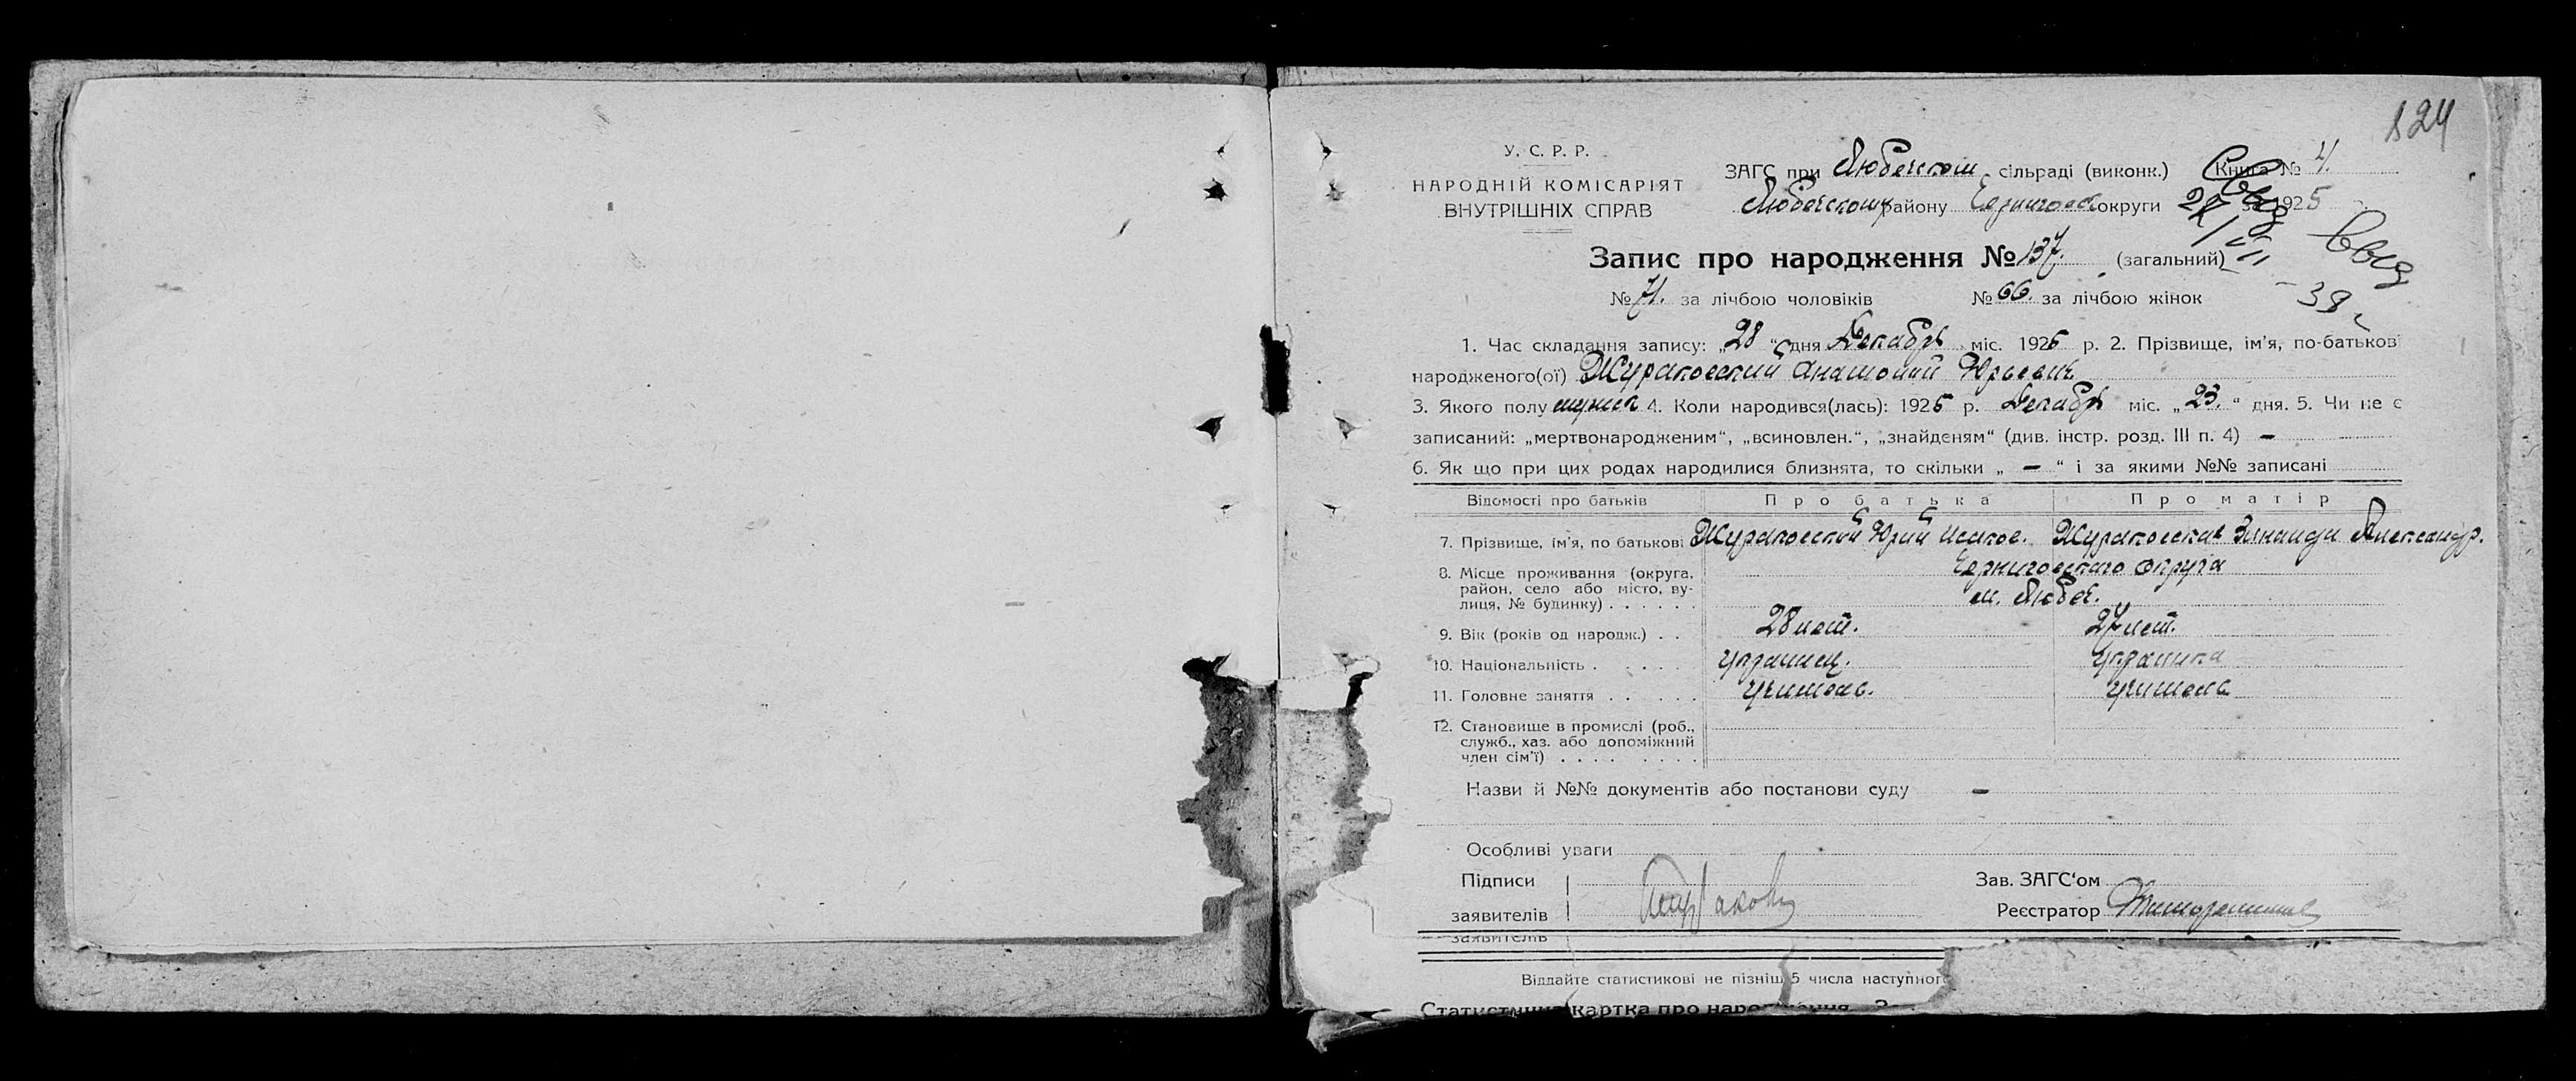 124
У. С. Р. Р.
НАРОДНІЙ КОМІСАРІЯТ
ВНУТРІШНІХ СПРАВ
ЗАГС при Любечском сільраді (виконк.) Книга № 4.
Любечском району Черниговск округи за 1925
Запис про народження № 137. (загальний)
№ 71. за лічбою чоловіків № 66. за лічбою жінок
38
1. Час складання запису: „28“ дня Декабря міс. 1925 р. 2. Прізвище, ім'я, по-батькові
народженого(ої) Жураковский Анатолий Юрьевич
3. Якого полу мужск 4. Коли народився(лась): 1925 р. Декабря міс. „23.“ дня. 5. Чи не є
записаний: „мертвонародженим“, „всиновлен.“, „знайденям“ (див. інстр. розд. III п. 4) —
6. Як що при цих родах народилися близнята, то скільки „ — “ і за якими №№ записані
Відомості про батьків Про батька Про матір
7. Прізвище, ім'я, по батькові Жураковский Юрий Исаков. Жураковская Зинаида Александр.
8. Місце проживання (округа, район, село або місто, вулиця, № будинку) . . . . . . Черниговского округа
м. Любеч.
9. Вік (років од народж.) . . 28 лет. 27 лет.
10. Національність . . . . . Украинец. Украинка
11. Головне заняття . . . . . Учитель. Учитель
12. Становище в промислі (роб.,
служб., хаз. або допоміжний
член сім'ї) . . . . . . . .
Назви й №№ документів або постанови суду —
Особливі уваги
Підписи Зав. ЗАГС‘ом
заявителів Реєстратор
заявителів
Віддайте статистикові не пізніш 5 числа наступног
Статистична картка про народження